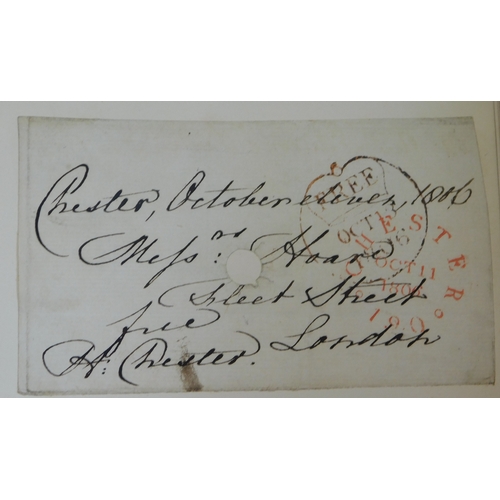 Chester, October eleven, 1806
Messrs: Hoare
Fleet Street
London
free
H: Chester.
FREE
OCT 13
1806
CHESTER
OCT 11
180
190